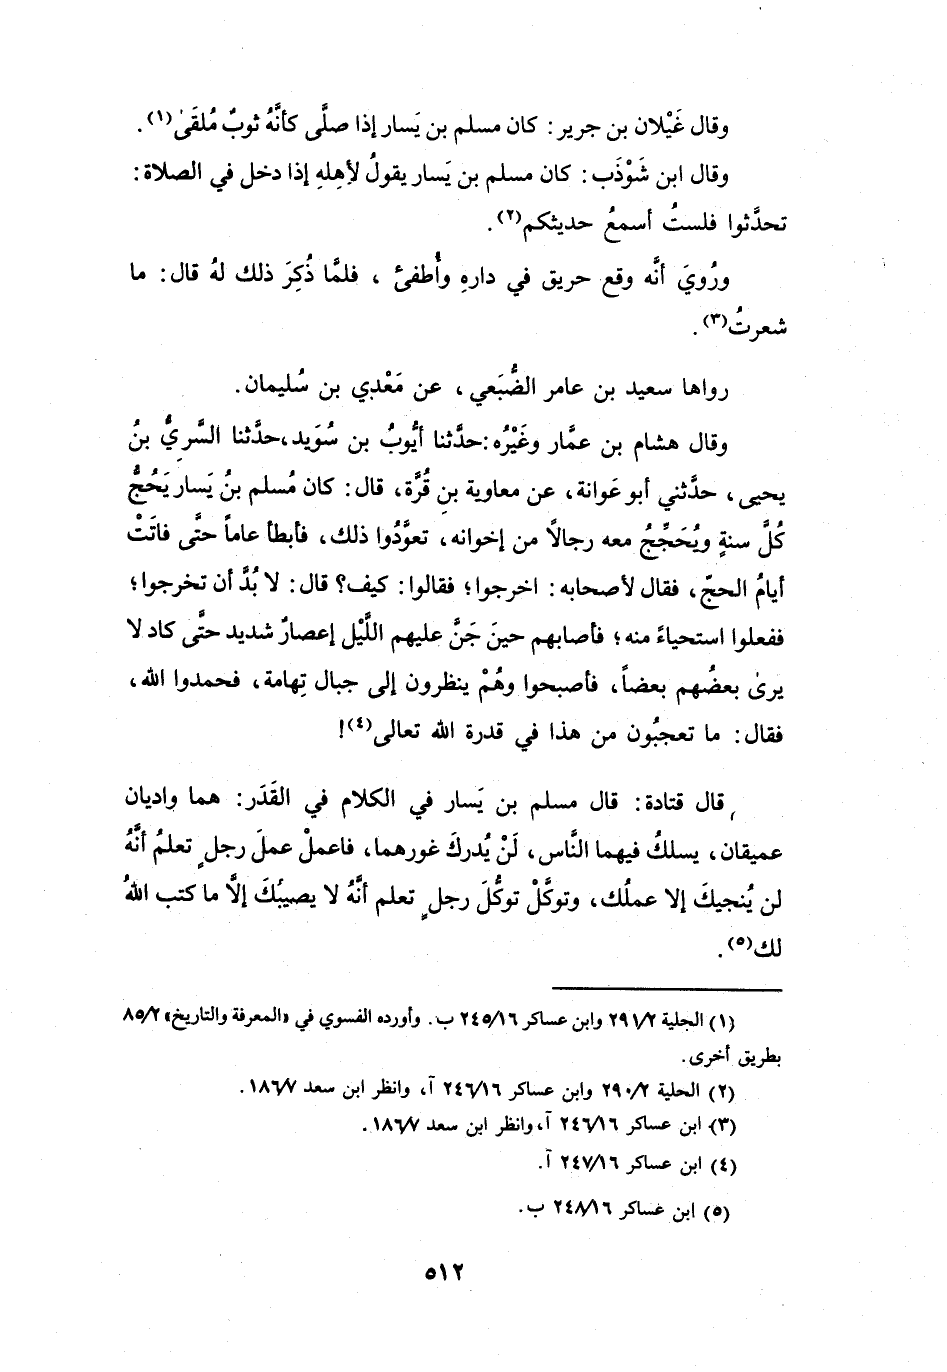 وقال غَيْلان بن جرير: كان مسلم بن يَسار إذا صلَّى كأنَّهُ ثوبٌ مُلقَىٰ(١).
وقال ابن شَوْذَب: كان مسلم بن يَسار يقولُ لأهلِهِ إذا دخل في الصلاة:
تحدَّثوا فلستُ أسمعُ حديثكم(٢).
ورُويَ أنَّه وقع حريق في دارهِ وأُطفئ ، فلمَّا ذُكِرَ ذلك لهُ قال: ما
شعرتُ(٣).
رواها سعيد بن عامر الضُّبَعي، عن مَعْدِي بن سُليمان.
وقال هشام بن عمَّار وغَيْرُه: حدَّثنا أيُّوبُ بن سُوَيد، حدَّثنا السَّرِيُّ بنُ
يحيى، حدَّثني أبو عَوانة، عن معاوية بنِ قُرَّة، قال: كان مُسلم بنُ يَسار يَحُجُّ
كُلَّ سنةٍ ويُحَجِّجُ معه رجالاً من إخوانه، تعوَّدُوا ذلك، فأبطأ عاماً حتَّى فاتَتْ
أيامُ الحجّ، فقال لأصحابه: اخرجوا؛ فقالوا: كيف؟ قال: لا بُدَّ أن تخرجوا؛
ففعلوا استحياءً منه؛ فأصابهم حينَ جَنَّ عليهم اللَّيْل إعصارٌ شديد حتَّى كاد لا
يرىٰ بعضُهم بعضاً، فأصبحوا وهُمْ ينظرون إلى جبال تِهامة، فحمدوا الله،
فقال: ما تعجبُون من هذا في قدرة الله تعالى(٤)!
قال قتادة: قال مسلم بن يَسار في الكلام في القَدَر: هما واديان
عميقان، يسلكُ فيهما النَّاس، لَنْ يُدركَ غورهما، فاعملْ عملَ رجلٍ تعلمُ أنَّهُ
لن يُنجيكَ إلا عملُك، وتوكَّلْ توكُّلَ رجلٍ تعلم أنَّهُ لا يصيبُكَ إلَّا ما كتب اللهُ
لك(٥).
(١) الحلية ٢٩١/٢ وابن عساكر ٢٤٥/١٦ ب. وأورده الفسوي في «المعرفة والتاريخ» ٨٥/٢
بطريق أخرى.
(٢) الحلية ٢٩٠/٢ وابن عساكر ٢٤٦/١٦ آ، وانظر ابن سعد ١٨٦/٧.
(٣) ابن عساكر ٢٤٦/١٦ آ، وانظر ابن سعد ١٨٦/٧.
(٤) ابن عساكر ٢٤٧/١٦ آ.
(٥) ابن عساكر ٢٤٨/١٦ ب.
٥١٢